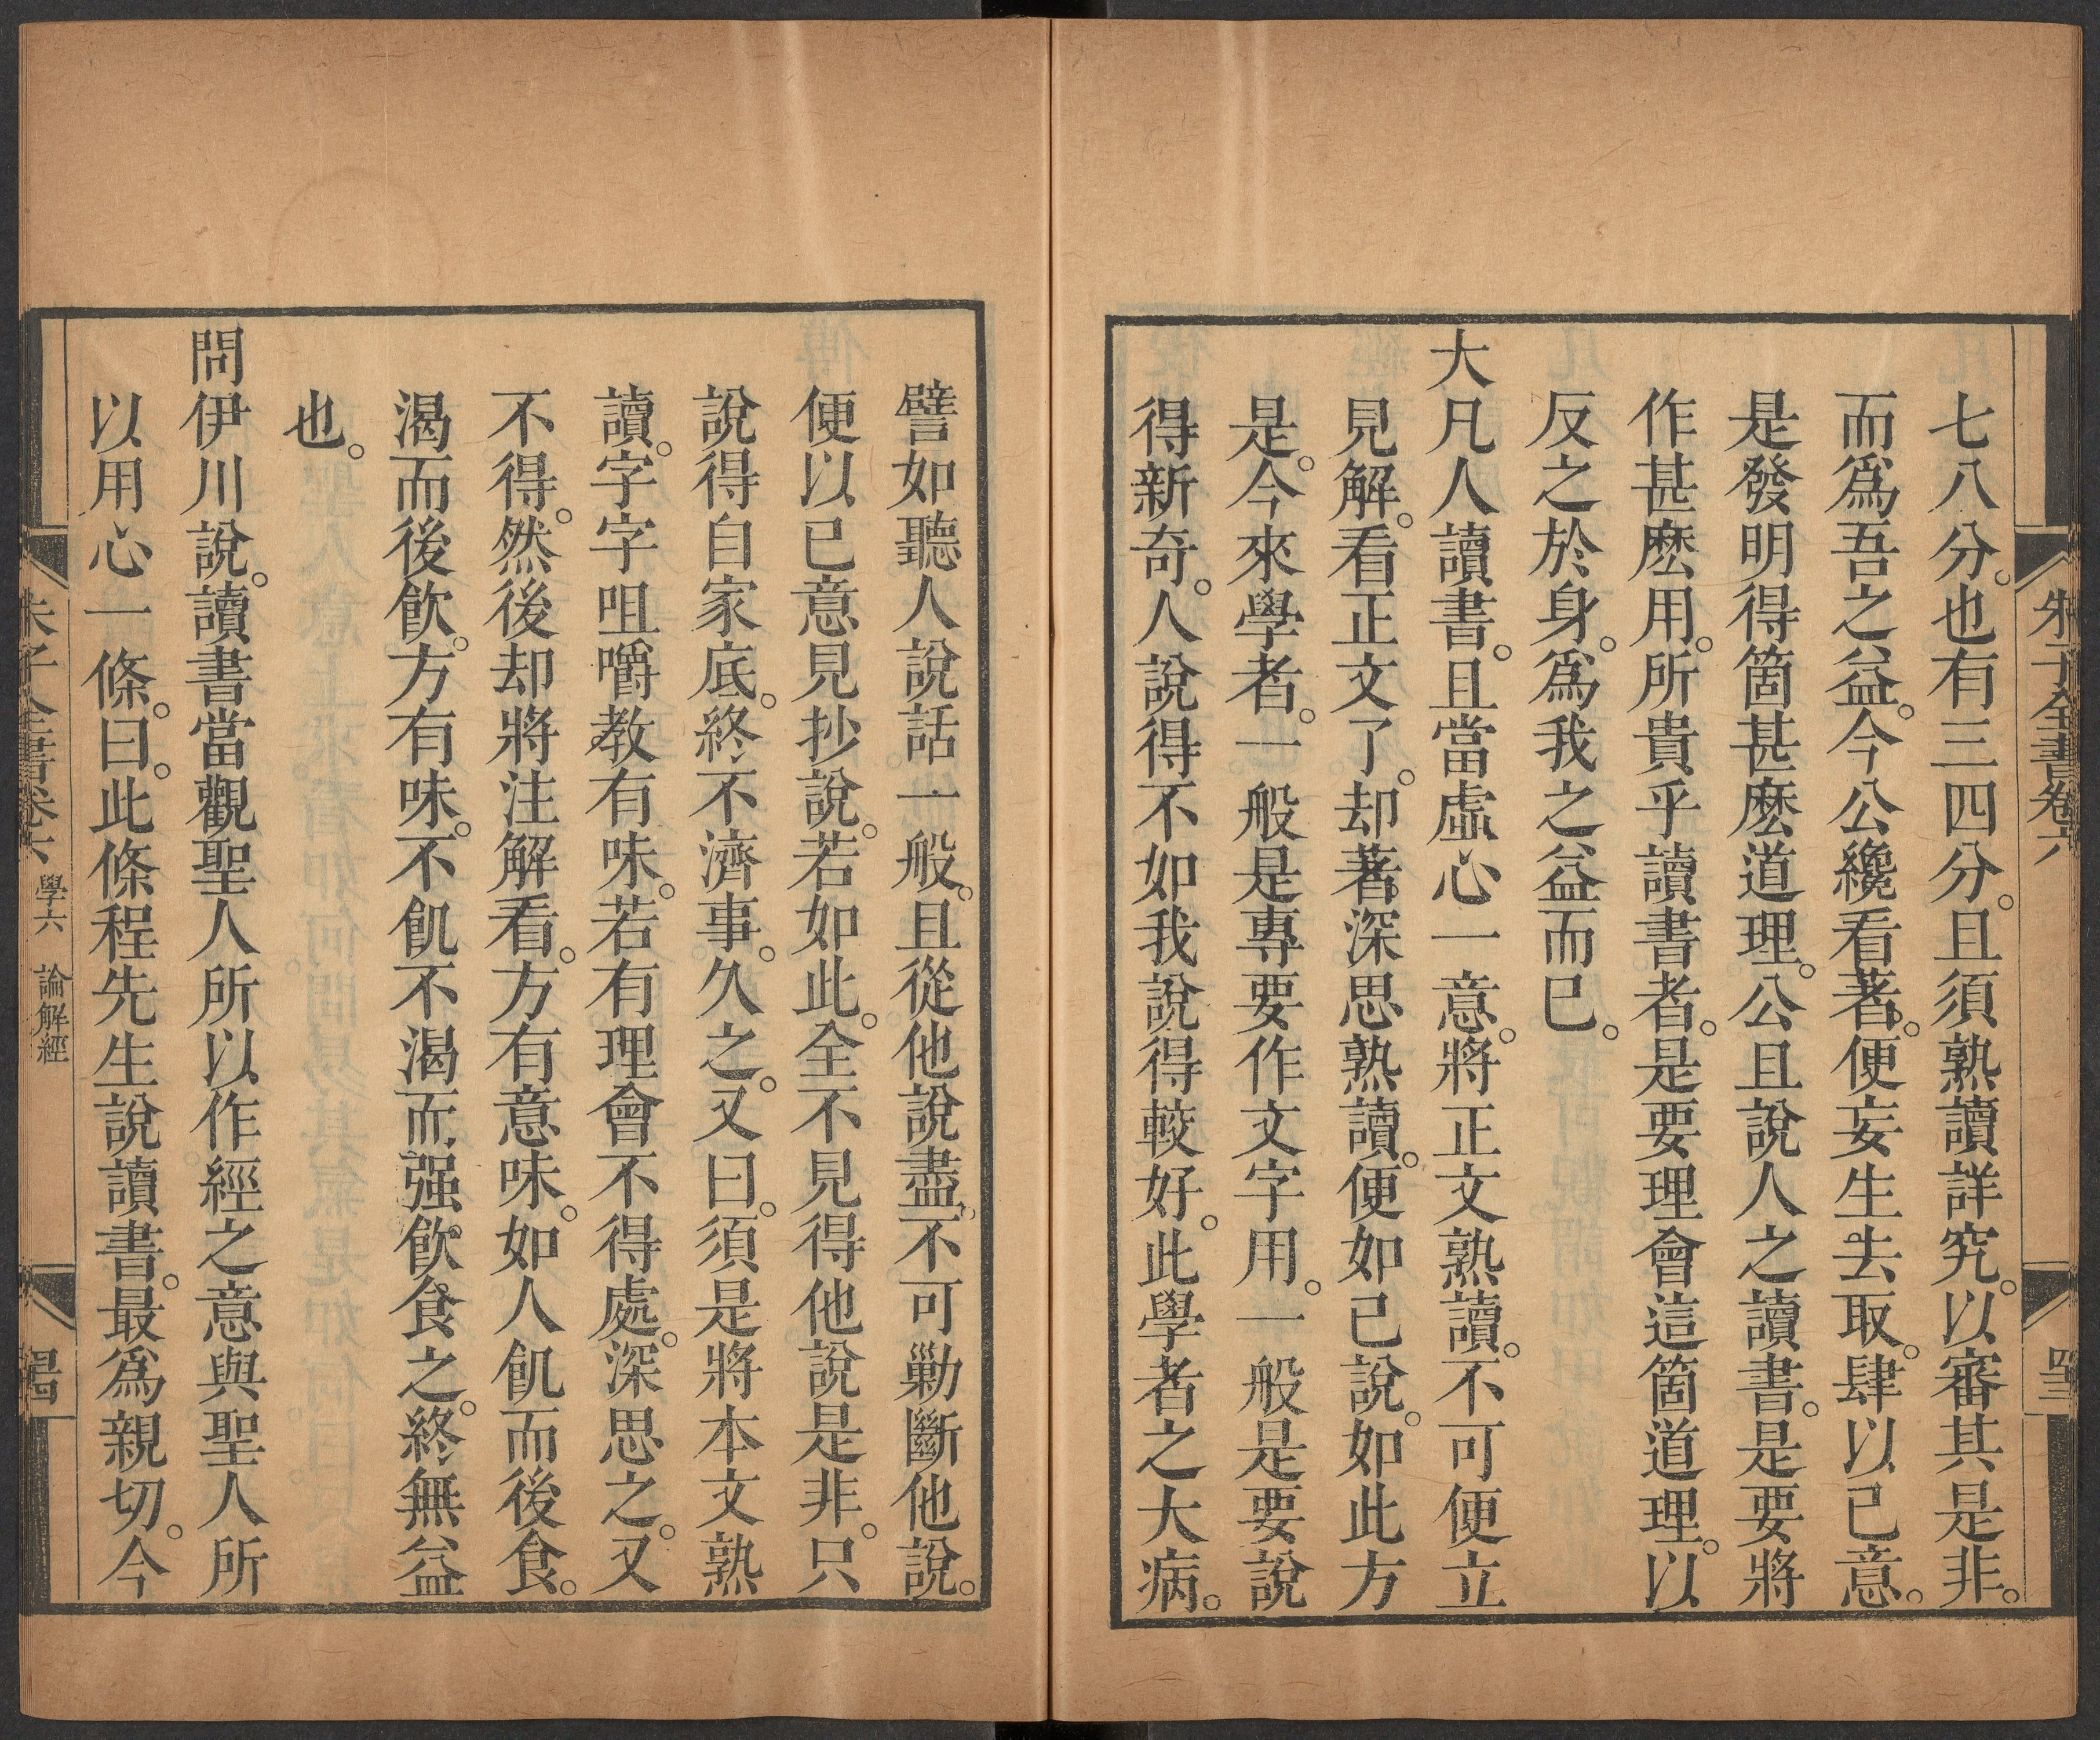 朱子全書卷六
七八分。也有三四分。且須熟讀詳究。以審其是非。
而爲吾之益。今公纔看著。便妄生去取。肆以己意。
是發明得箇甚麽道理。公且說人之讀書。是要將
作甚麽用。所貴乎讀書者。是要理會這箇道理。以
反之於身。爲我之益而已。
大凡人讀書。且當虛心一意。將正文熟讀。不可便立
見解。看正文了。却著深思熟讀。便如己說。如此方
是。今來學者。一般是專要作文字用。一般是要說
得新奇。人說得不如我說得較好。此學者之大病。
譬如聽人說話一般。且從他說盡。不可勦斷他說。
便以己意見抄說。若如此。全不見得他說是非。只
說得自家底。終不濟事。久之。又曰。須是將本文熟
讀。字字咀嚼教有味。若有理會不得處。深思之。又
不得。然後却將注解看。方有意味。如人飢而後食。
渴而後飲。方有味。不飢不渴而强飲食之。終無益
也。
問伊川說。讀書當觀聖人所以作經之意與聖人所
以用心一條。曰。此條程先生說讀書。最爲親切。今
朱子全書卷六 學六 論解經